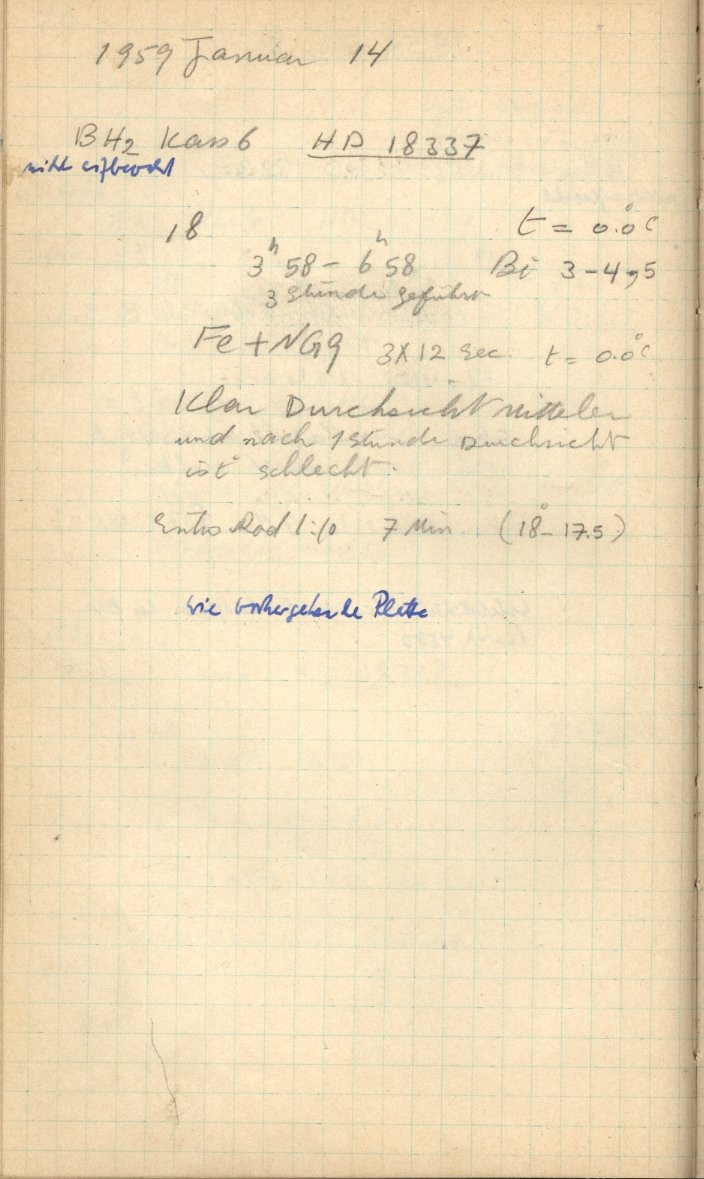 1959 Januar 14
BH2 Kass 6 HD 18337
nicht aufbewahrt
18 t = 0.0°C
3h 58 - 6h 58 Bi 3-4,5
3 Stunde geführt
Fe + NG9 3X12 Sec. t = 0.0°C
Klar Durchsicht mitteler
und nach 1 Stunde Durchsicht
ist schlecht.
Rod 1:10 7 Min (18°-17.5)
wie vorhergehende Platte